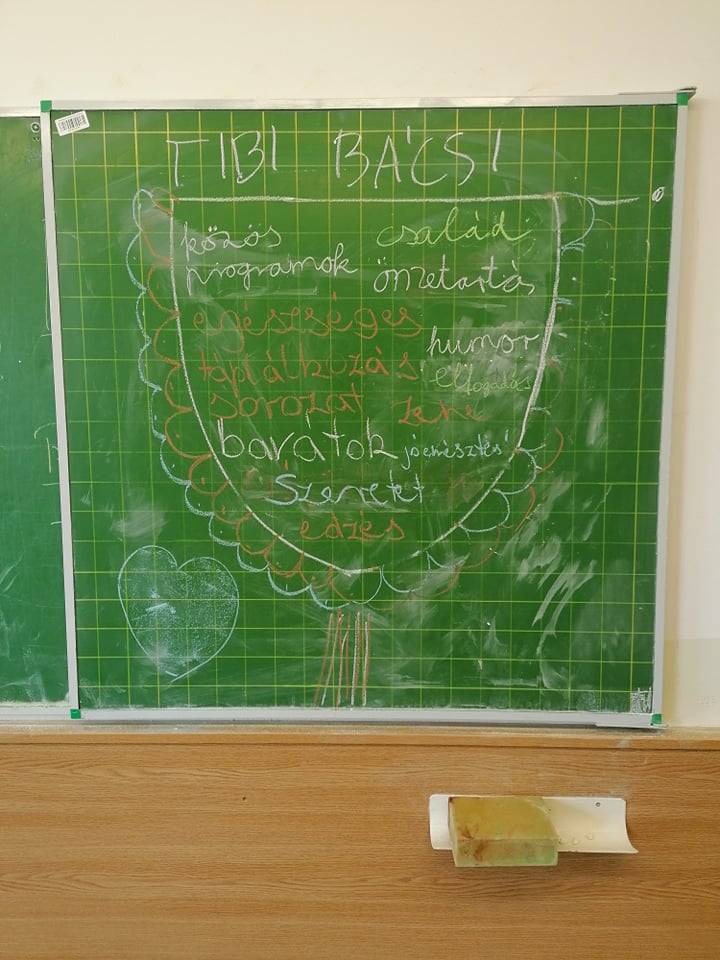 TIBI BÁCSI
közös család
programok önzetartás
egészséges
humor
táplálkozás elfogadás
sorozat zene
barátok jóemésztés
Szeretet
edzés